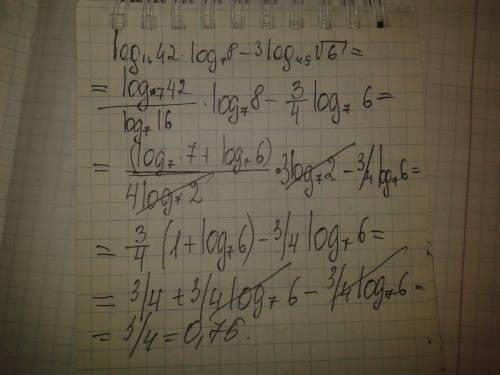 log₁₆42 · log₇8 − 3log₄₉√6 =
= log₇42 / log₇16 · log₇8 − 3/4 log₇ 6 =
= (log₇ 7 + log₇6) / 4log₇2 · 3log₇2 − 3/4 log₇6 =
= 3/4 (1 + log₇6) − 3/4 log₇6 =
= 3/4 + 3/4 log₇ 6 − 3/4 log₇6 =
= 3/4 = 0,76.